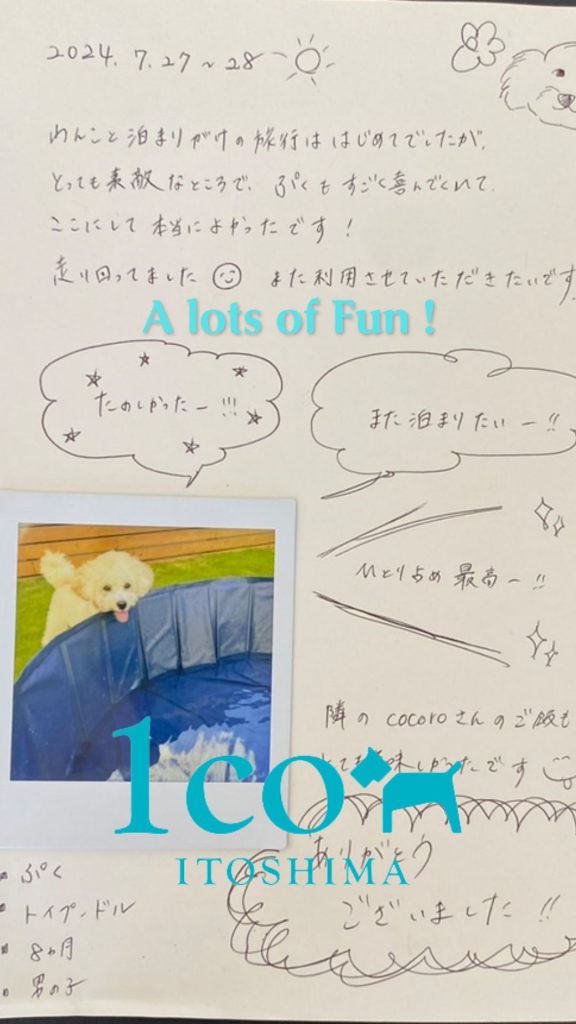 2024. 7. 27 ~ 28
わんこと泊まりがけの旅行ははじめてでしたが、
とっても素敵なところで、ぷくもすごく喜んでくれて、
ここにして本当によかったです！
走り回ってました また利用させていただきたいです
A lots of Fun !
たのしかったー!!!
また泊まりたいー!!
ひとり占め最高ー!!
隣のcocoroさんのご飯も
とても美味しかったです
1co
ITOSHIMA
ありがとう
ございました!!
ぷく
トイプードル
8ヵ月
男の子